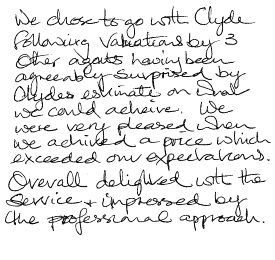 We chose to go with Clyde
following valuations by 3
other agents having been
agreeably surprised by
Clydes estimate on what
we could acheive. We
were very pleased when
we achived a price which
exceeded our expectations.
Overall delighted with the
Service + impressed by
the professional approach.